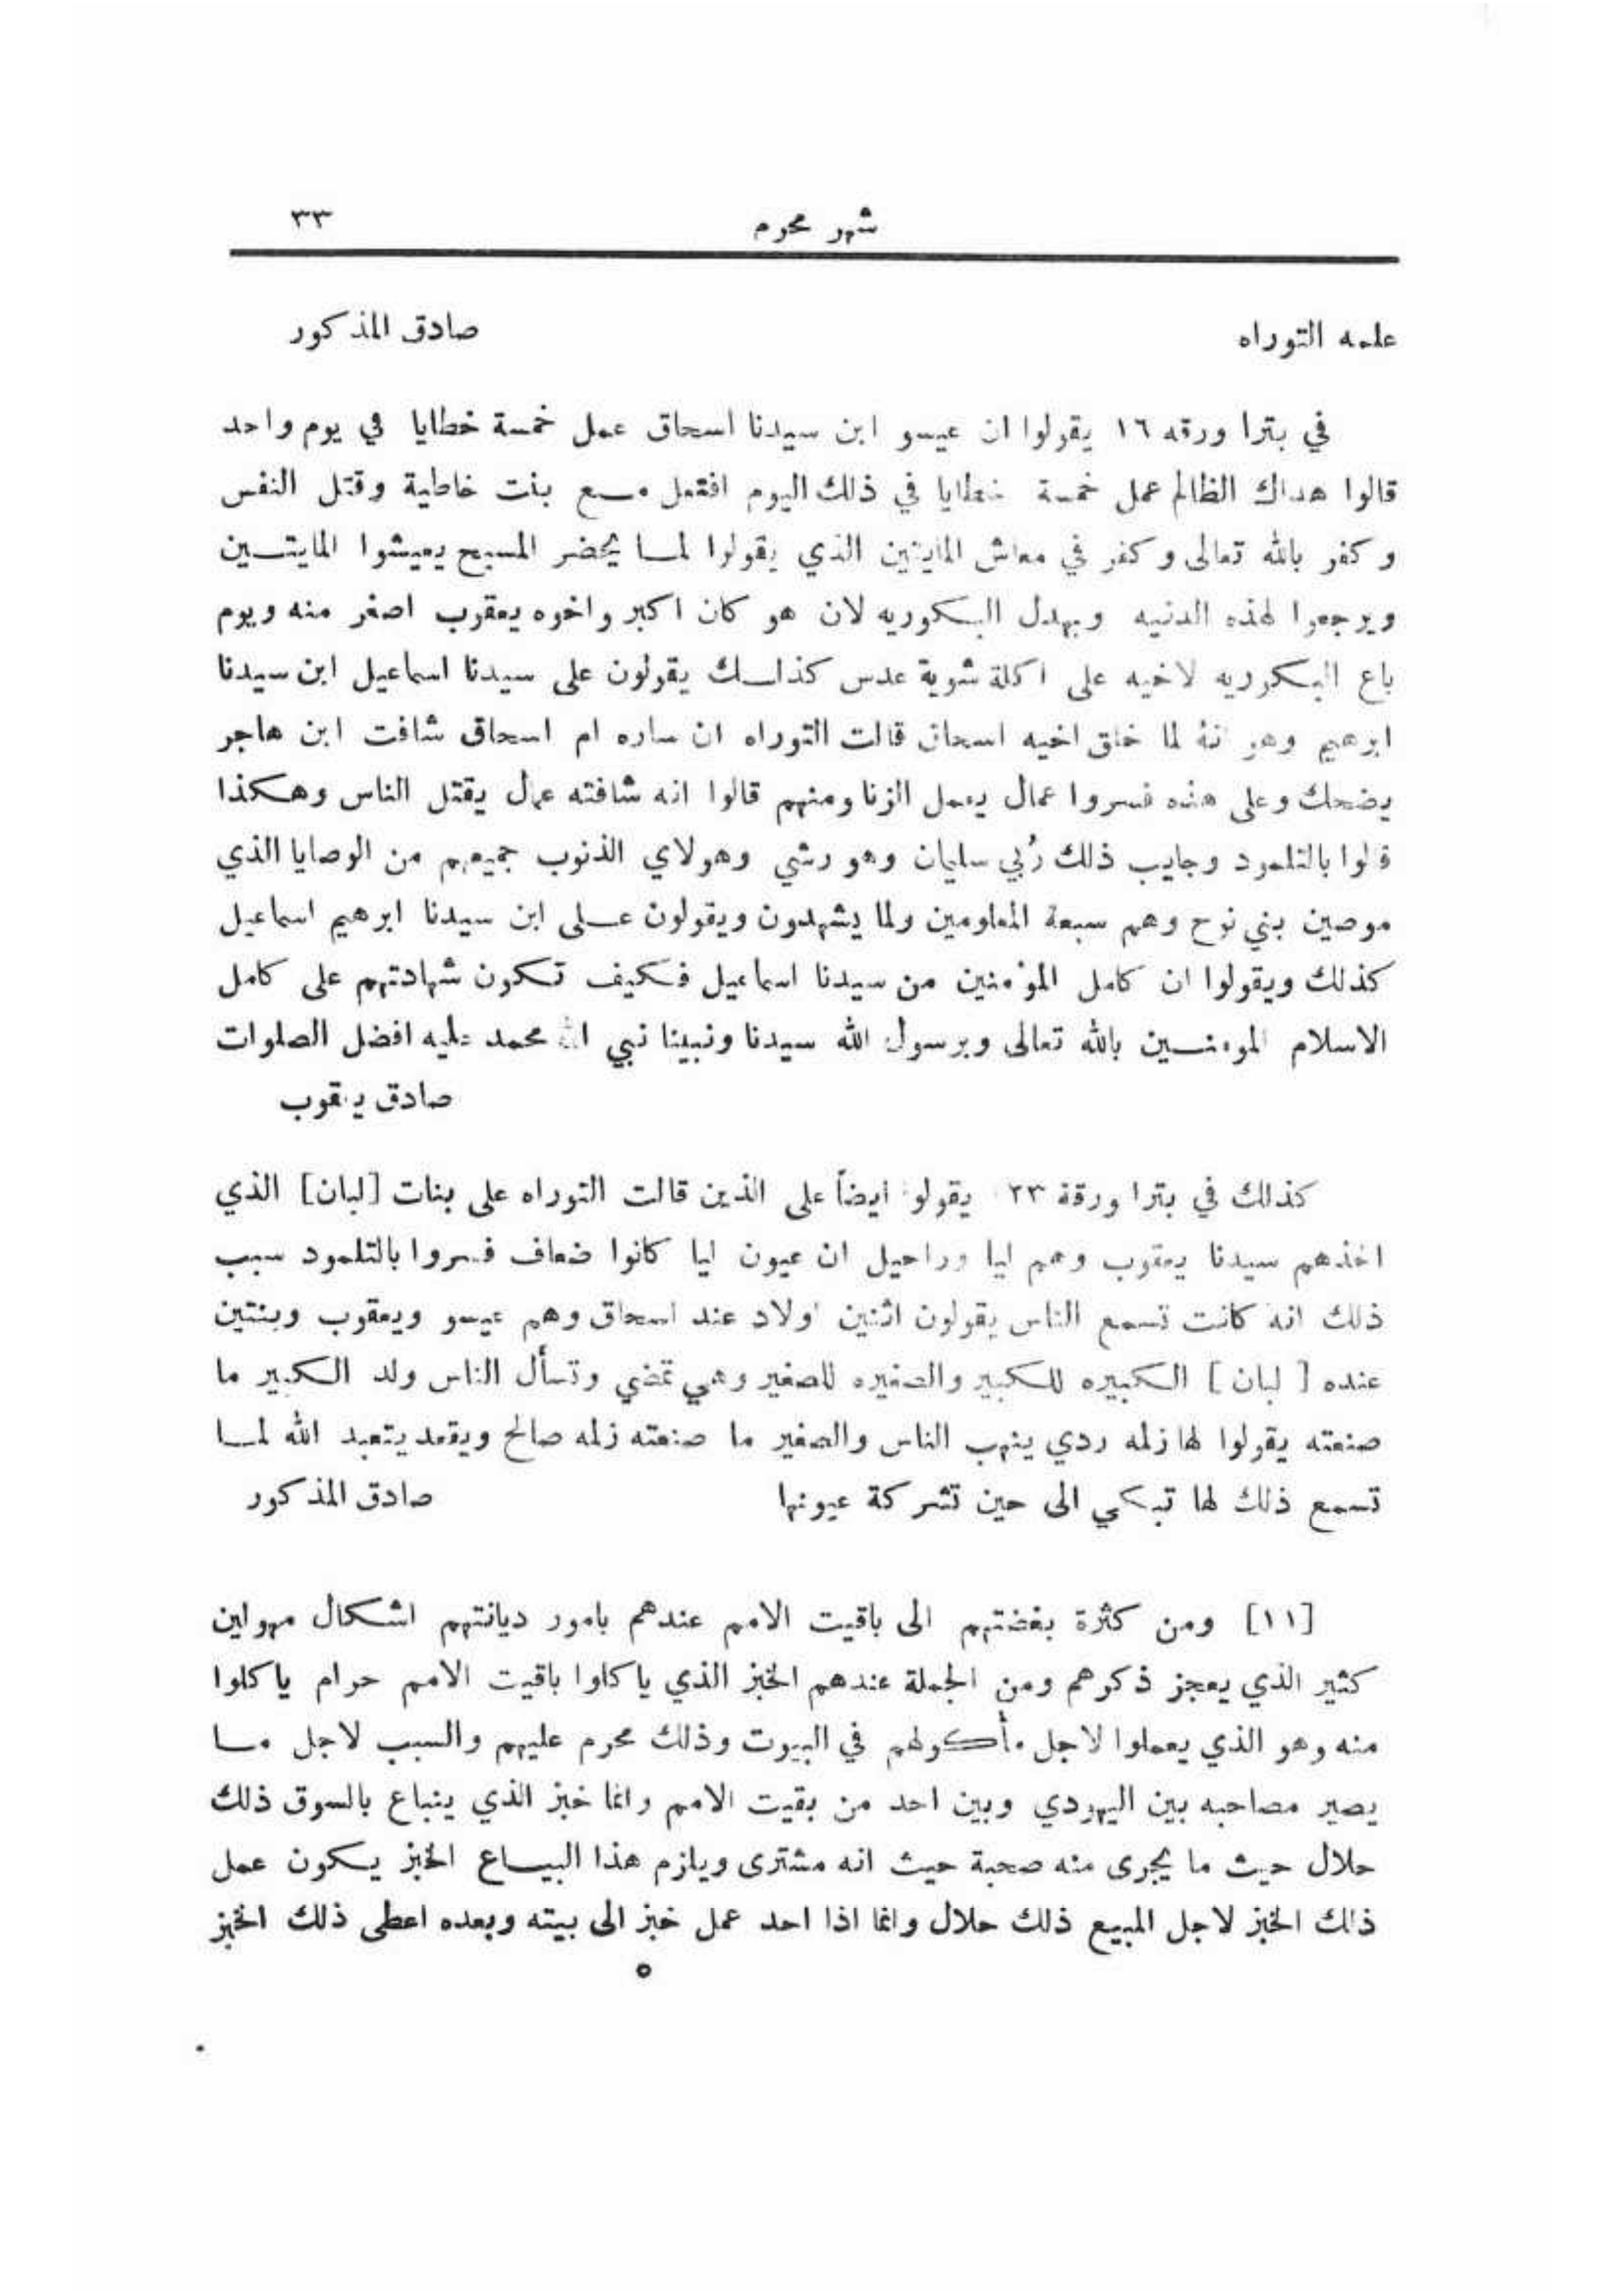 شهر محرم ٣٣
علمه التوراه صادق المذكور
في بترا ورقه ١٦ يقولوا ان عيسو ابن سيدنا اسحاق عمل خمسة خطايا في يوم واحد
قالوا هداك الظالم عمل خمسة خطايا في ذلك اليوم افتعل مع بنت خاطية وقتل النفس
وكفر بالله تعالى وكفر في معاش المايتين الذي يقولوا لما يحضر المسيح يعيشوا المايتين
ويرجعوا لهذه الدنيه وبهدل البكوريه لان هو كان اكبر واخوه يعقوب اصغر منه ويوم
باع البكوريه لاخيه على اكلة شوية عدس كذلك يقولون على سيدنا اسماعيل ابن سيدنا
ابرهيم وهو انه لما خلق اخيه اسحاق قالت التوراه ان ساره ام اسحاق شافت ابن هاجر
يضحك وعلى هذه فسروا عمال يعمل الزنا ومنهم قالوا انه شافته عمال يقتل الناس وهكذا
قالوا بالتلمود وجايب ذلك رُبي سليمان وهو رشي وهولاي الذنوب جميعهم من الوصايا الذي
موصين بني نوح وهم سبعة المعلومين ولما يشهدون ويقولون على ابن سيدنا ابرهيم اسماعيل
كذلك ويقولوا ان كامل المؤمنين من سيدنا اسماعيل فكيف تكون شهادتهم على كامل
الاسلام المومنين بالله تعالى وبرسول الله سيدنا ونبينا نبي الله محمد عليه افضل الصلوات
صادق يعقوب
كذلك في بترا ورقة ٢٣ يقولوا ايضاً على الذين قالت التوراه على بنات [لبان] الذي
اخذهم سيدنا يعقوب وهم ليا وراحيل ان عيون ليا كانوا ضعاف فسروا بالتلمود سبب
ذلك انه كانت تسمع الناس يقولون اثنين اولاد عند اسحاق وهم عيسو ويعقوب وبنتين
عنده [ لبان ] الكبيره للكبير والصغيره للصغير وهي تمضي وتسأل الناس ولد الكبير ما
صنعته يقولوا لها زلمه ردي ينهب الناس والصغير ما صنعته زلمه صالح ويقعد يتعبد الله لما
تسمع ذلك لها تبكي الى حين تشركة عيونها صادق المذكور
[١١] ومن كثرة بغضتهم الى باقيت الامم عندهم بامور ديانتهم اشكال مهولين
كثير الذي يعجز ذكرهم ومن الجملة عندهم الخبز الذي ياكلوا باقيت الامم حرام ياكلوا
منه وهو الذي يعملوا لاجل مأكولهم في البيوت وذلك محرم عليهم والسبب لاجل ما
يصير مصاحبه بين اليهودي وبين احد من بقيت الامم وانما خبز الذي ينباع بالسوق ذلك
حلال حيث ما يجرى منه صحبة حيث انه مشترى ويلزم هذا البياع الخبز يكون عمل
ذلك الخبز لاجل المبيع ذلك حلال وانما اذا احد عمل خبز الى بيته وبعده اعطى ذلك الخبز
٥